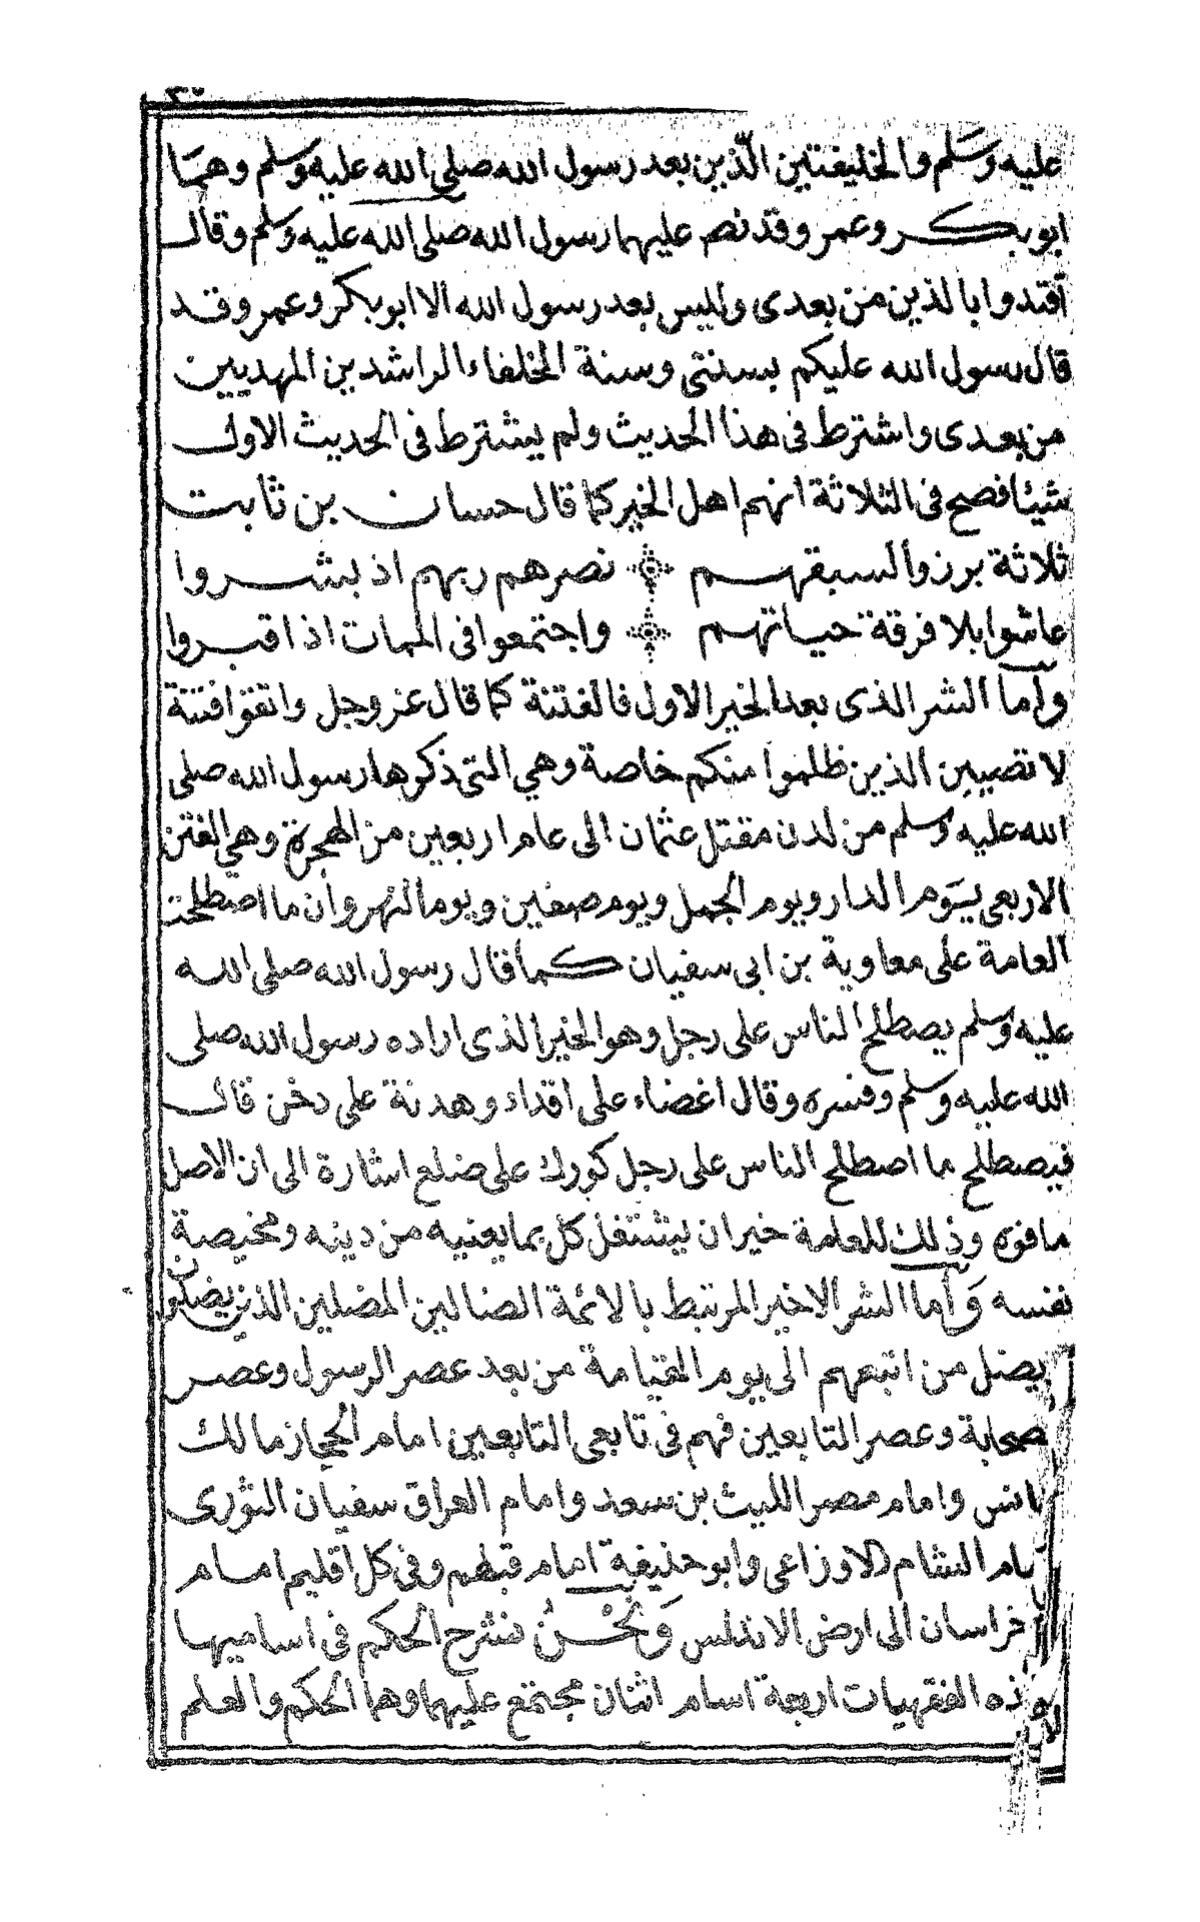 عليه وسلم والخليفتين الّذين بعد رسول الله صلى الله عليه وسلم وهمَا
ابو بكر وعمر وقد نص عليهما رسول الله صلى الله عليه وسلم وقال
اقتدوا بالذين من بعدى وليس بعد رسول الله الا ابو بكر وعمر وقد
قال رسول الله عليكم بسنتى وسنة الخلفاء الراشدين المهديين
من بعدى واشترط فى هذا الحديث ولم يشترط فى الحديث الاول
شيئا فصح فى الثلاثة انهم اهل الخير كما قال حسان بن ثابت
ثلاثة برزوا لسبقهم نصرهم ربهم اذ بشروا
عاشوا بلا فرقة حياتهم واجتمعوا فى الممات اذا اقبروا
واما الشر الذى بعد الخير الاول فالفتنة كما قال عز وجل واتقوا فتنة
لا تصيبن الذين ظلموا منكم خاصة وهي التى ذكرها رسول الله صلى
الله عليه وسلم من لدن مقتل عثمان الى عام اربعين من الهجرة وهي الفتن
الاربعى يَوم الدار ويوم الجمل ويوم صفين ويوم النهروان ما اصطلحت
العامة على معاوية بن ابى سفيان كما قال رسول الله صلى الله
عليه وسلم يصطلح الناس على رجل وهو الخير الذى اراده رسول الله صلى
الله عليه وسلم وفسره وقال اغضاء على اقذاء وهدنة على دخن قال
فيصطلح ما اصطلح الناس على رجل كورك على ضلع اشارة الى ان الاصل
ما فوه وذلك للعامة خير ان يشتغل كل بما يعنيه من دينه ومخيصة
نفسه وَأما الشر الاخير المرتبط بالائمة الضالين المضلين الذين يضلون
يضل من اتبعهم الى يوم القيامة من بعد عصر الرسول وعصر
صحابة وعصر التابعين فهم فى تابعى التابعين امام الحجاز مالك
انس وامام مصر الليث بن سعد وامام العراق سفيان الثورى
مام الشام الاوزاعى وابو حنيفة امام قبلهم وفى كل اقليم امام
خراسان الى ارض الاندلس وَنحْنُ نشرح الحكم فى اساميها
ذه الفقهيات اربعة اسام اثنان مجتمع عليهما وهما الحكم والعلم